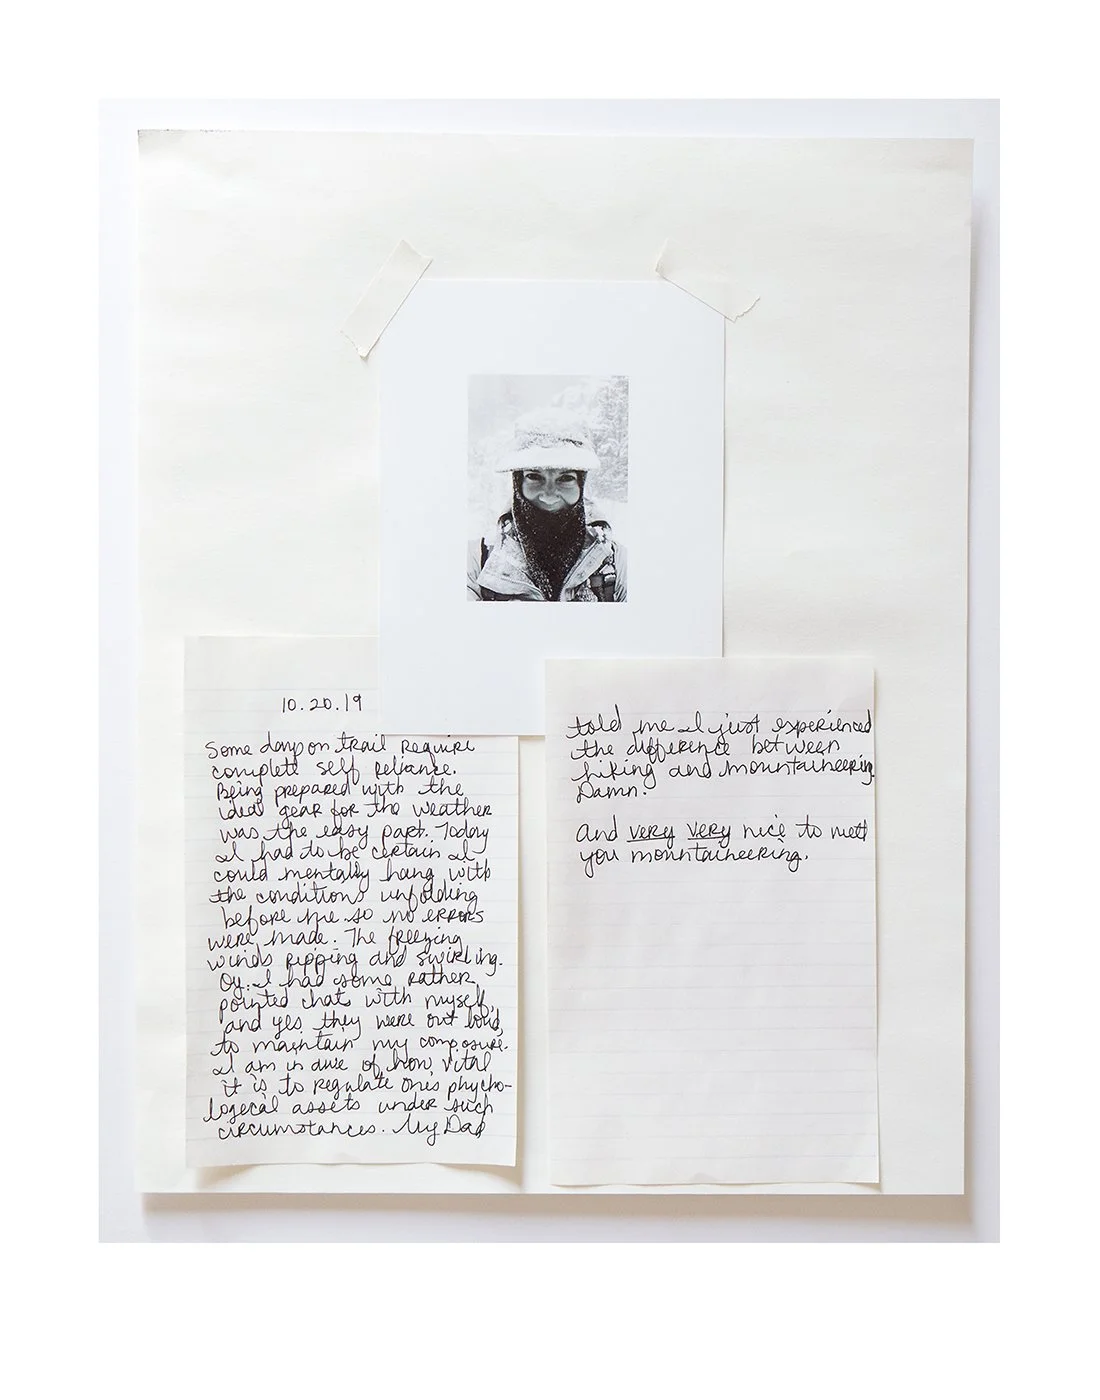 10.20.19
Some days on trail require
complete self reliance.
Being prepared with the
ideal gear for the weather
was the easy part. Today
I had to be certain I
could mentally hang with
the conditions unfolding
before me so no errors
were made. The freezing
winds ripping and swirling.
Oy. I had some rather
pointed chats with myself,
and yes, they were out loud,
to maintain my composure.
I am in awe of how vital
it is to regulate one's psycho-
logical assets under such
circumstances. My Dad
told me I just experienced
the difference between
hiking and mountaineering.
Damn.
And very very nice to meet
you mountaineering.